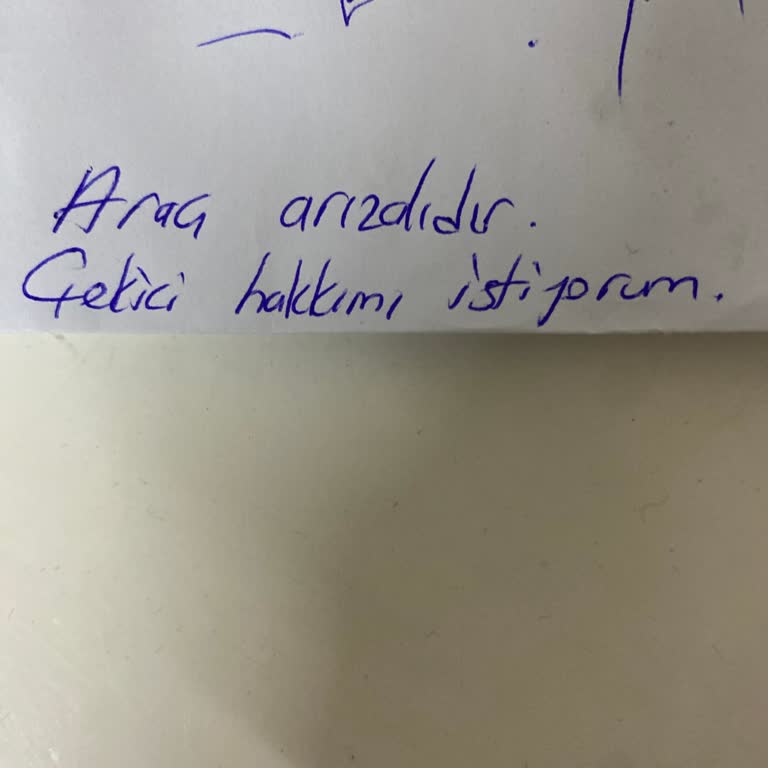 Araç arızalıdır.
Çekici hakkımı istiyorum.